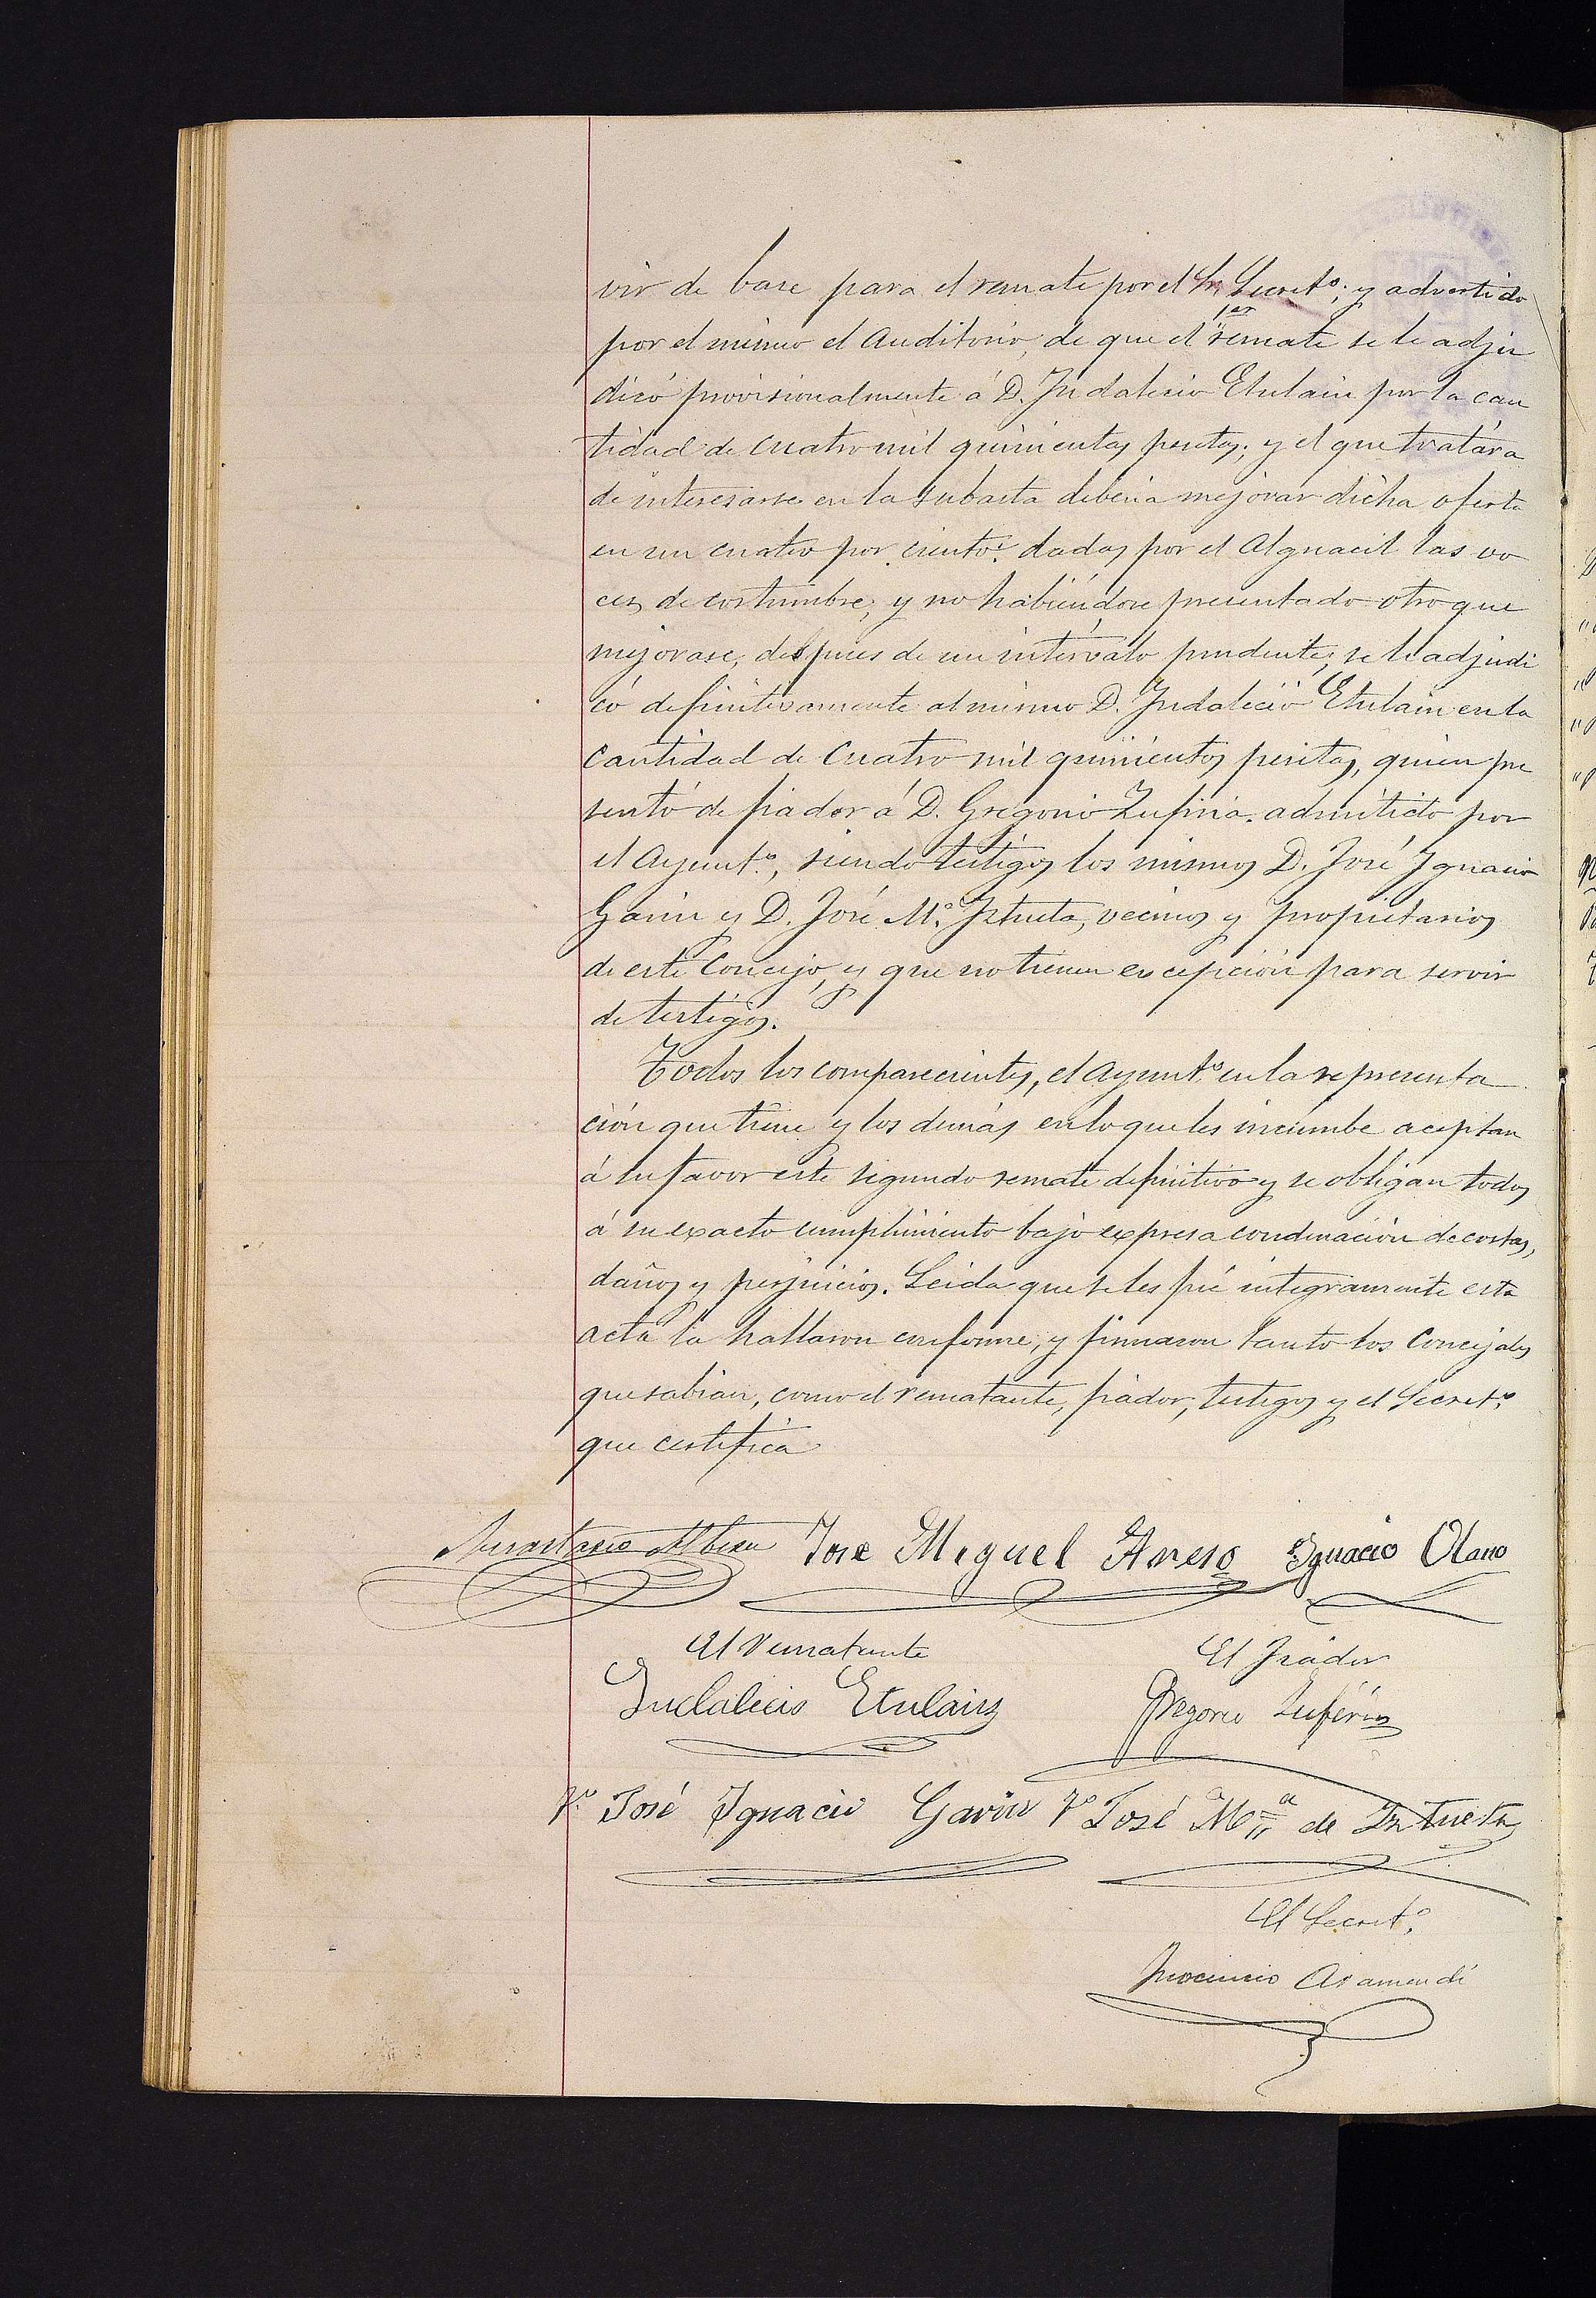 vir de base para el remate por el Sr. Secretº; y advertido
por el mismo el Auditorio, de que el 1er remate se le adju
dicó provisionalmente á D. Indalecio Etulain por la can
tidad de cuatro mil quinientas pesetas; y el que tratára
de interesarse en la subasta deberia mejorar dicha oferta
en un cuatro por ciento: dadas por el Alguacil las vo
ces de costumbre, y no habiéndose presentado otro que
mejorase, despues de un intérvalo prudente, se le adjudi
có definitivamente al mismo D. Indalecio Etulain en la
cantidad de cuatro mil quinientas pesetas, quien pre
sentó de fiador á D. Gregorio Zufiria, admitido por
el Ayuntº, siendo testigos los mismos D. José Ignacio
Garin y D. José Mª Iztueta, vecinos y propietarios
de este Concejo, y que no tienen escepción para servir
de testigos.
Todos los comparecientes, el Ayuntº en la representa
ción que tiene y los demás en lo que les incumbe aceptan
á su favor este segundo remate definitivo y se obligan todos
á su exacto cumplimiento bajo expresa condenación de costas,
daños y perjuicios. Leida que se les fué integramente esta
acta la hallaron conforme, y firmaron tanto los Concejales
que sabian, como el rematante, fiador, testigos y el Secretº
que certifica
Anastasio Jose Miguel Areso Ignacio Olano
El Rematante El Fiador
Indalecio Etulain Gregorio Zufiria
Tº José Ignacio Garin Tº José Mª de Iztueta
El Secretº
Inocencio Aramendi